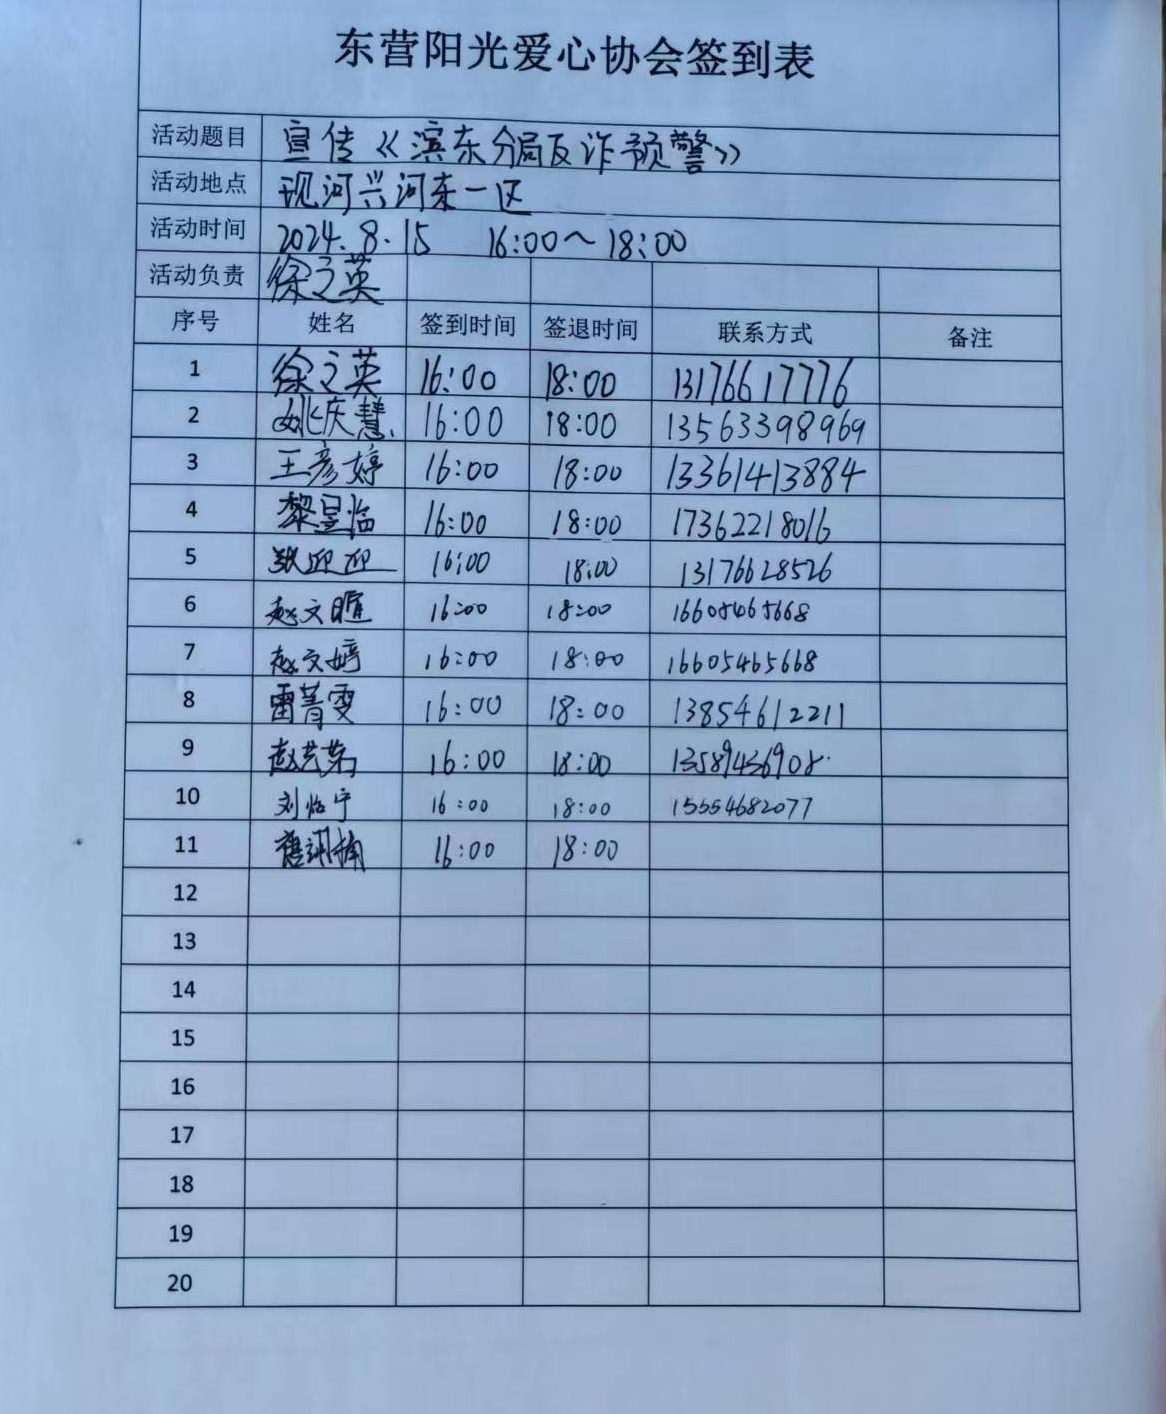 东营阳光爱心协会签到表
活动题目 宣传《滨东分局反诈预警》
活动地点 现河兴河东一区
活动时间 2024.8.15 16:00～18:00
活动负责 徐之英
序号 姓名 签到时间 签退时间 联系方式 备注
1 徐之英 16:00 18:00 13176617776
2 姚庆慧 16:00 18:00 13563398969
3 王彦婷 16:00 18:00 13361413884
4 黎昱临 16:00 18:00 17362218016
5 张迎迎 16:00 18:00 13176628526
6 赵文暄 16:00 18:00 16605465668
7 赵文婷 16:00 18:00 16605465668
8 雷菁雯 16:00 18:00 13854612211
9 16:00 18:00 13589436908
10 刘怡宁 16:00 18:00 15554682077
11 16:00 18:00
12
13
14
15
16
17
18
19
20